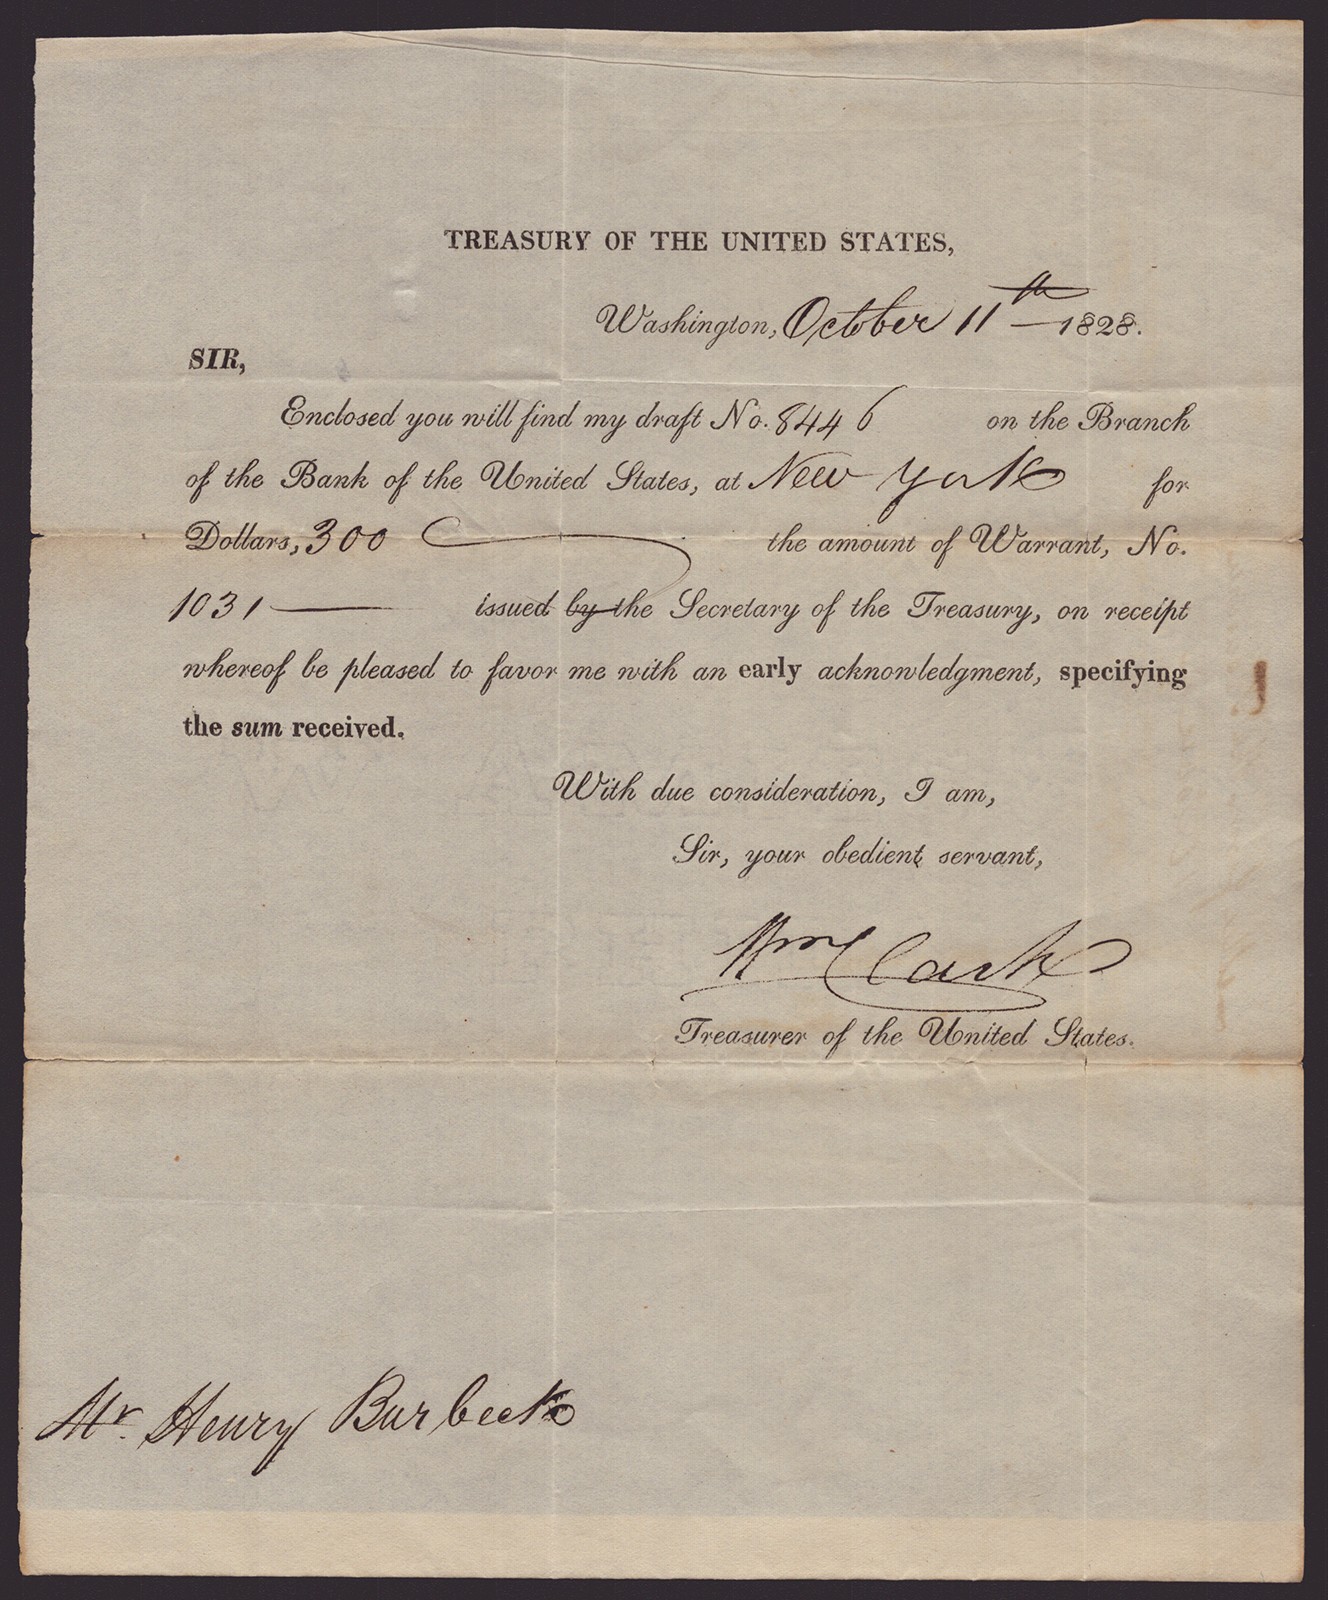 TREASURY OF THE UNITED STATES,
Washington, October 11th 1828.
SIR,
Enclosed you will find my draft No. 8446 on the Branch
of the Bank of the United States, at New York for
Dollars, 300 the amount of Warrant, No.
1031 — issued by the Secretary of the Treasury, on receipt
whereof be pleased to favor me with an early acknowledgment, specifying
the sum received.
With due consideration, I am,
Sir, your obedient servant,
Wm Clark
Treasurer of the United States.
Mr. Henry Burbeck